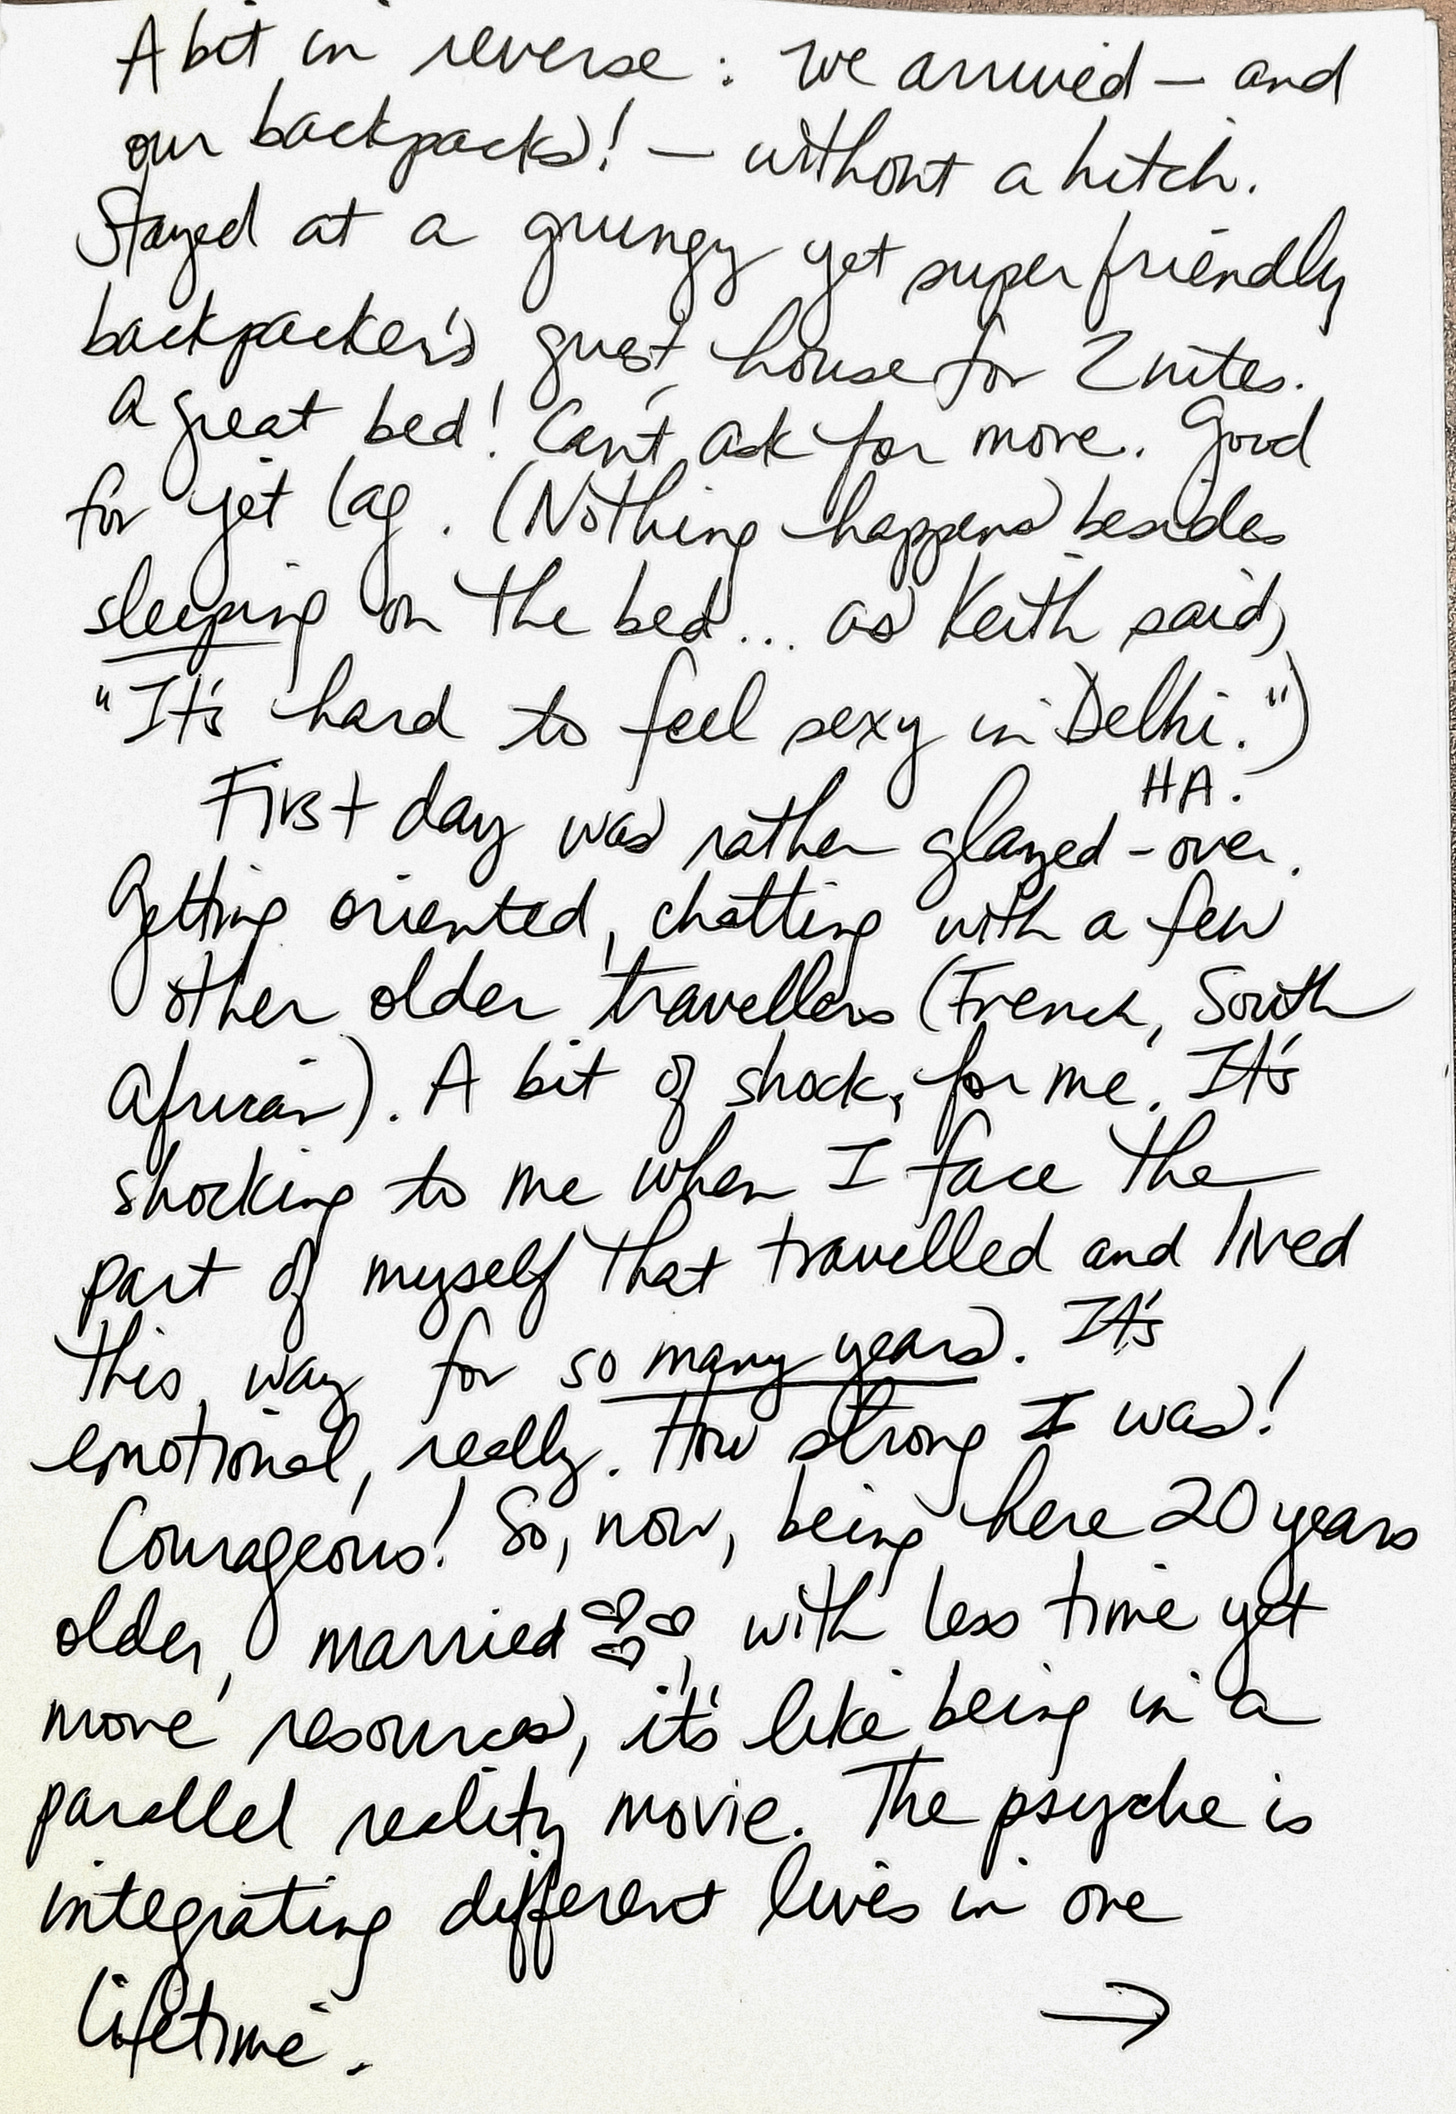 A bit in reverse: We arrived — and
our backpacks! — without a hitch.
Stayed at a grungy yet super friendly
backpacker's guest house for 2 nites.
A great bed! Can't ask for more. Good
for jet lag. (Nothing happens besides
sleeping on the bed... as Keith said,
"It's hard to feel sexy in Delhi.")
HA.
First day was rather glazed-over.
Getting oriented, chatting with a few
other older travellers (French, South
African). A bit of shock, for me. It's
shocking to me when I face the
part of myself that travelled and lived
this way for so many years. It's
emotional, really. How strong I was!
Courageous! So, now, being here 20 years
older, married ♡♡♡, with less time yet
more resources, it's like being in a
parallel reality movie. The psyche is
integrating different lives in one
lifetime. →